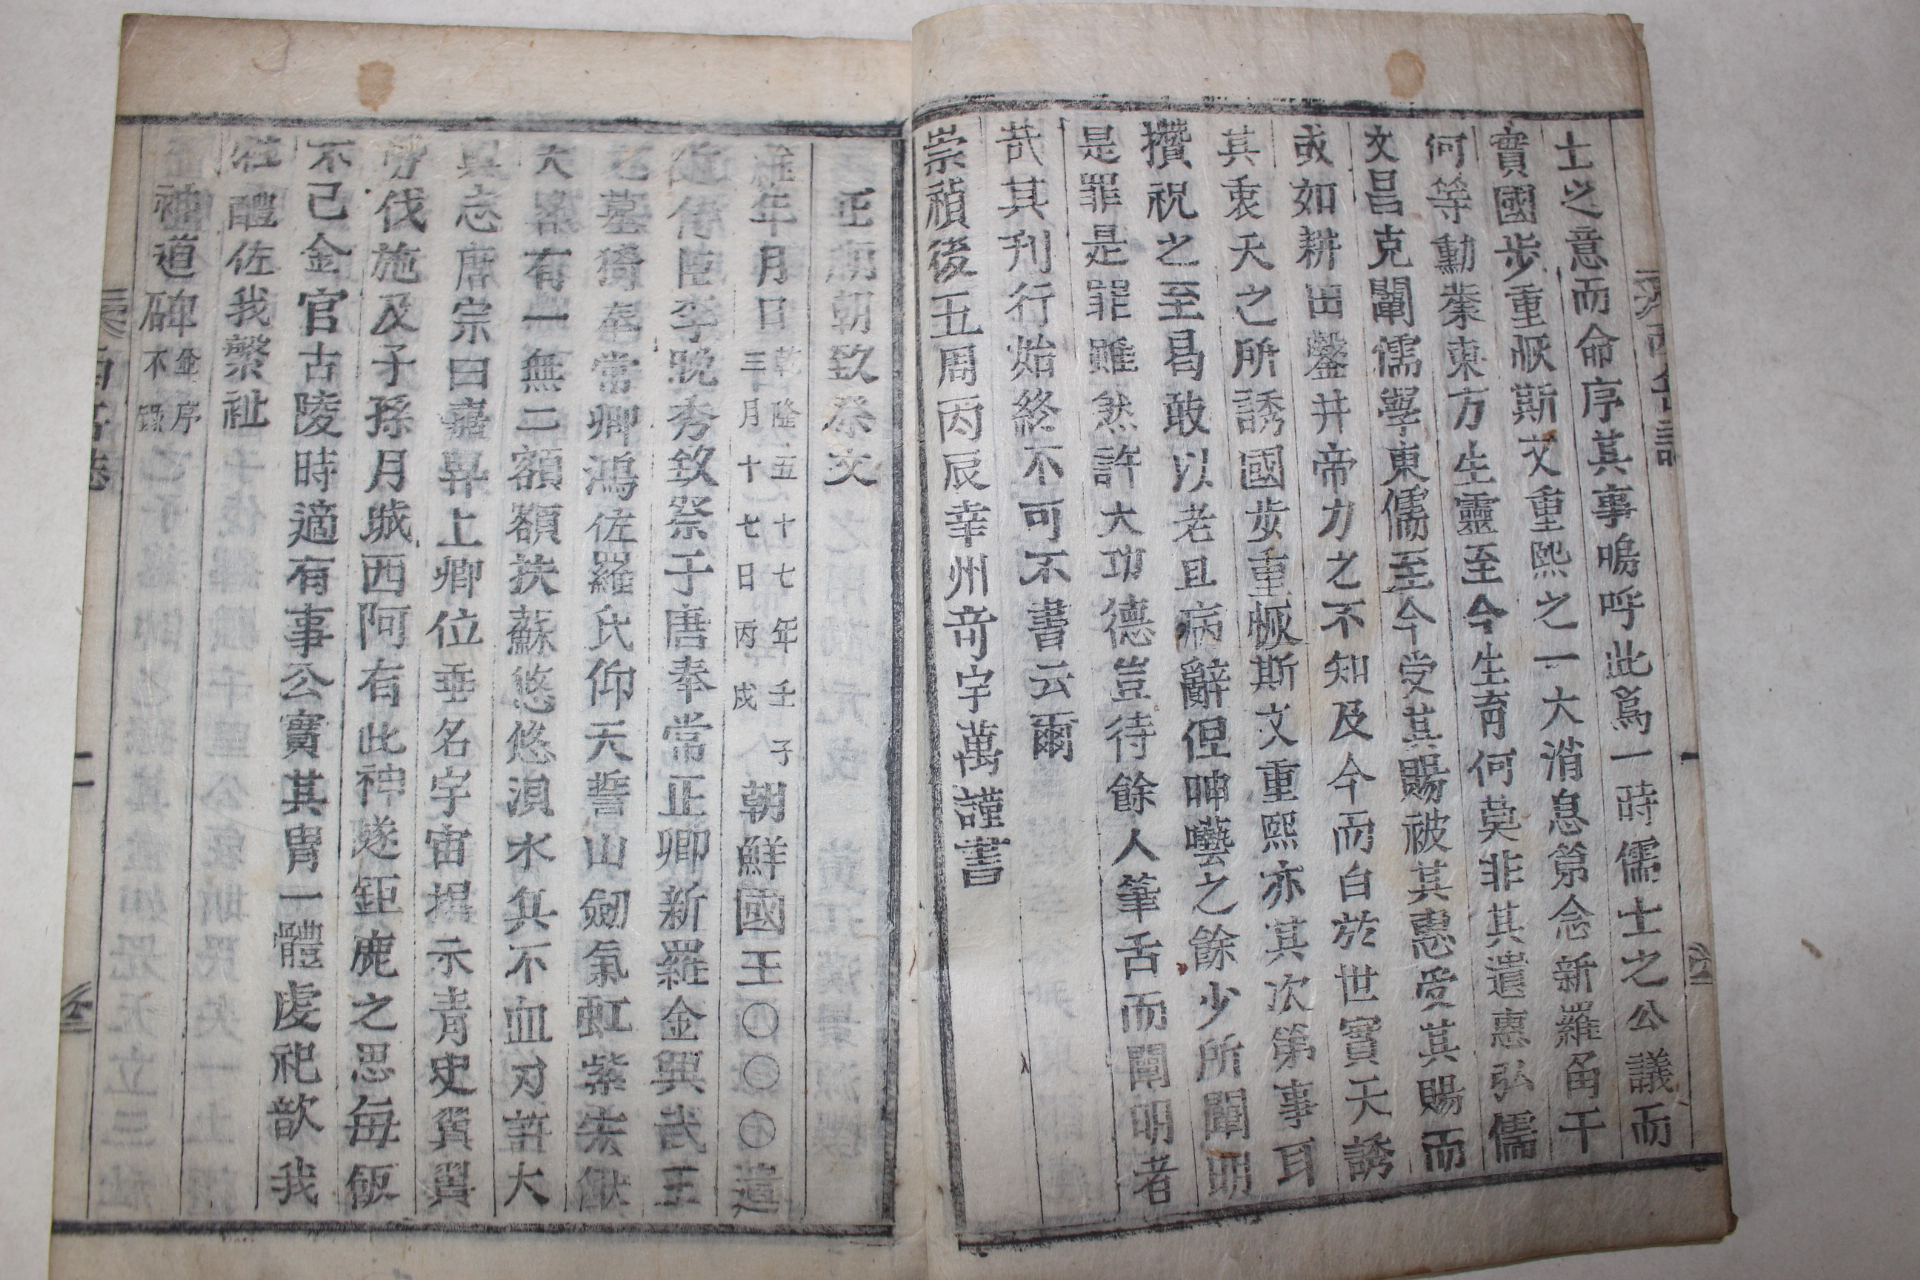 士之意而命序其事嗚呼此爲一時儒士之公議而
實國步重恢斯文重熙之一大消息第念新羅角干
何等勳業東方生靈至今生育何莫非其遺惠弘儒
文昌克闡儒學東儒至今受其賜被其惠受其賜而
或如耕田鑿井帝力之不知及今而白於世實天誘
其衷天之所誘國步重恢斯文重熙亦其次第事耳
攢祝之至曷敢以老且病辭但呻囈之餘少所闡明
是罪是罪雖然許大功德豈待餘人筆舌而闡明者
哉其刊行始終不可不書云爾
崇禎後五周丙辰幸州奇宇萬謹書
正廟朝致祭文
維年月日乾隆五十七年壬子三月十七日丙戌朝鮮國王〇〇〇遣
近侍臣李晩秀致祭于唐奉常正卿新羅金興武王
之墓猗奉常卿鴻佐羅氏仰天誓山劒氣虹紫宏猷
大畧有一無二額額扶蘇悠悠浿水兵不血刃許大
其志唐宗曰嘉畀上卿位垂名宇宙揭示靑史冀翼
勞伐施及子孫月城西阿有此神邃鉅鹿之思每飯
不已金官古陵時適有事公實其冑一體虔祀歆我
牲醴佐我繁祉
神道碑幷序不錄